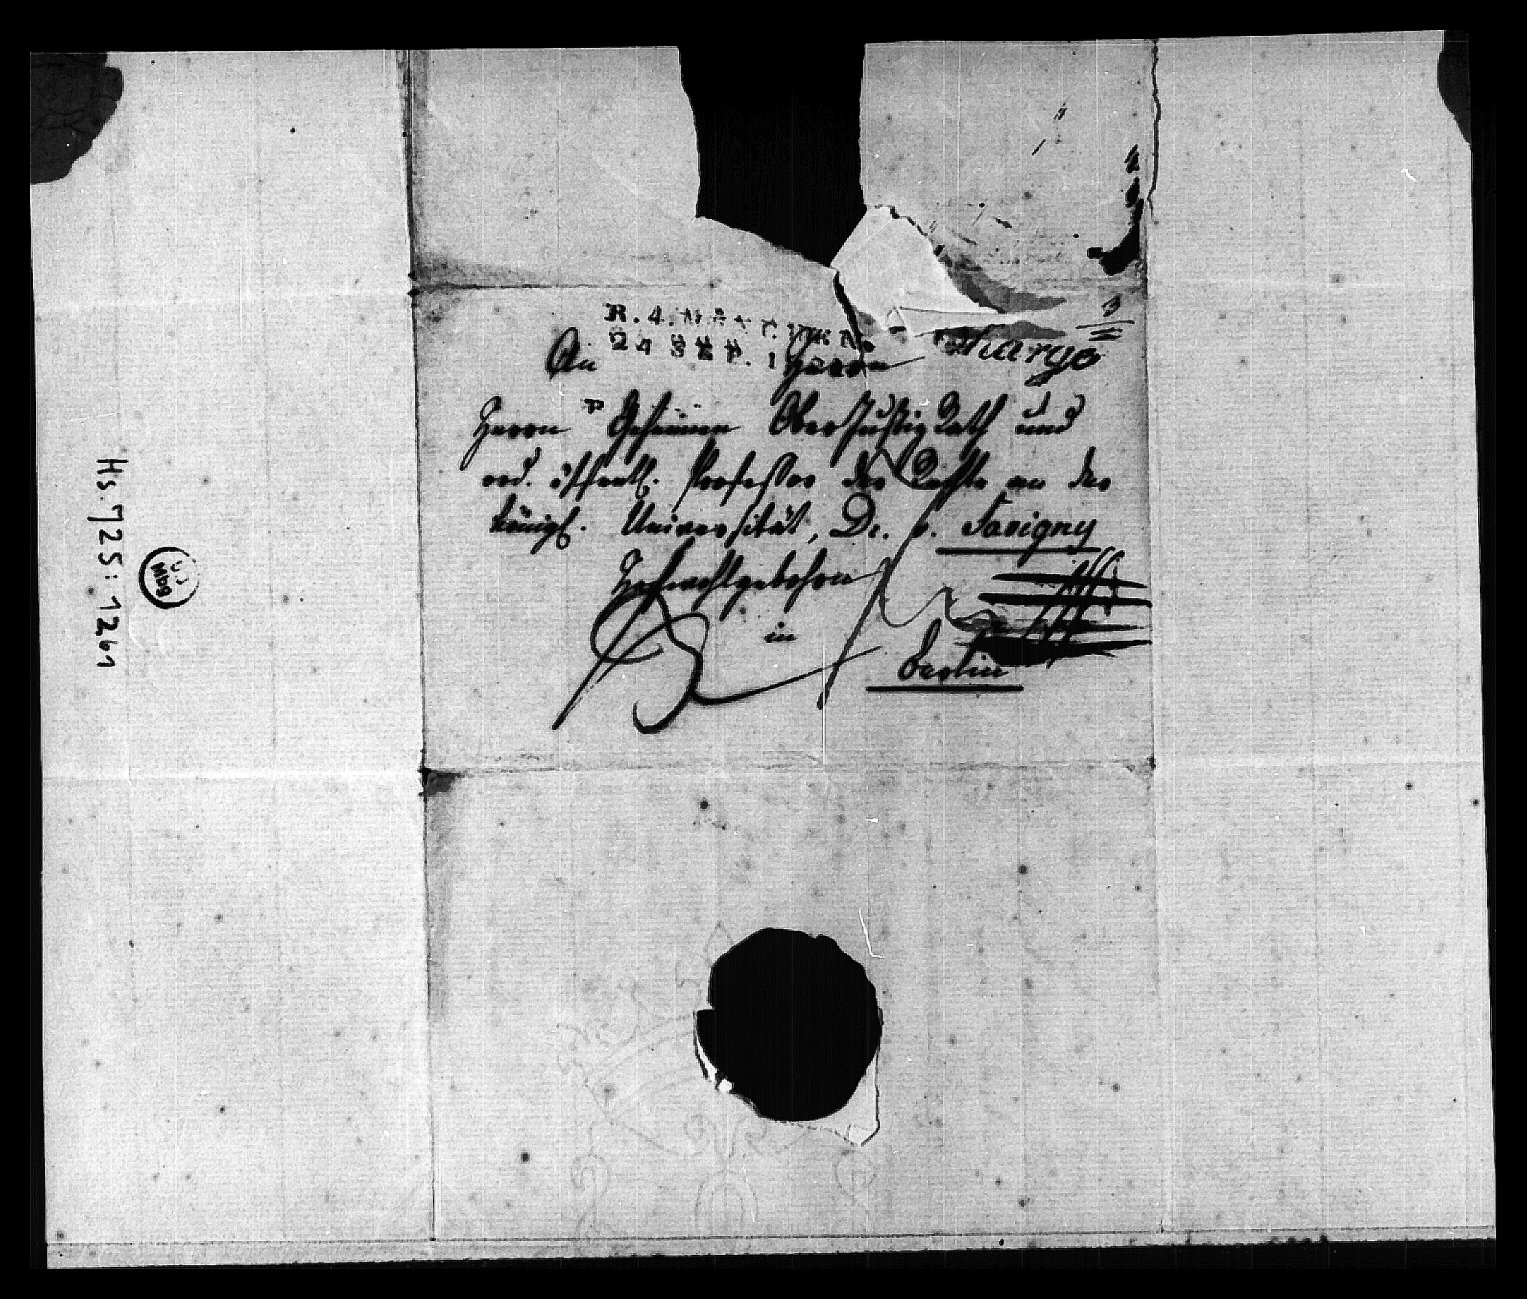 R. 4. 
24 SEP. 1
Chargé
3
An Herrn
Herrn Geheimen Oberjustizrath und
ord. öffentl. Professor der Rechte an der
königl. Universität, Dr. v. Savigny
Hochwohlgebohren
in
Berlin
Hs. 725:1261
UB
Mbg